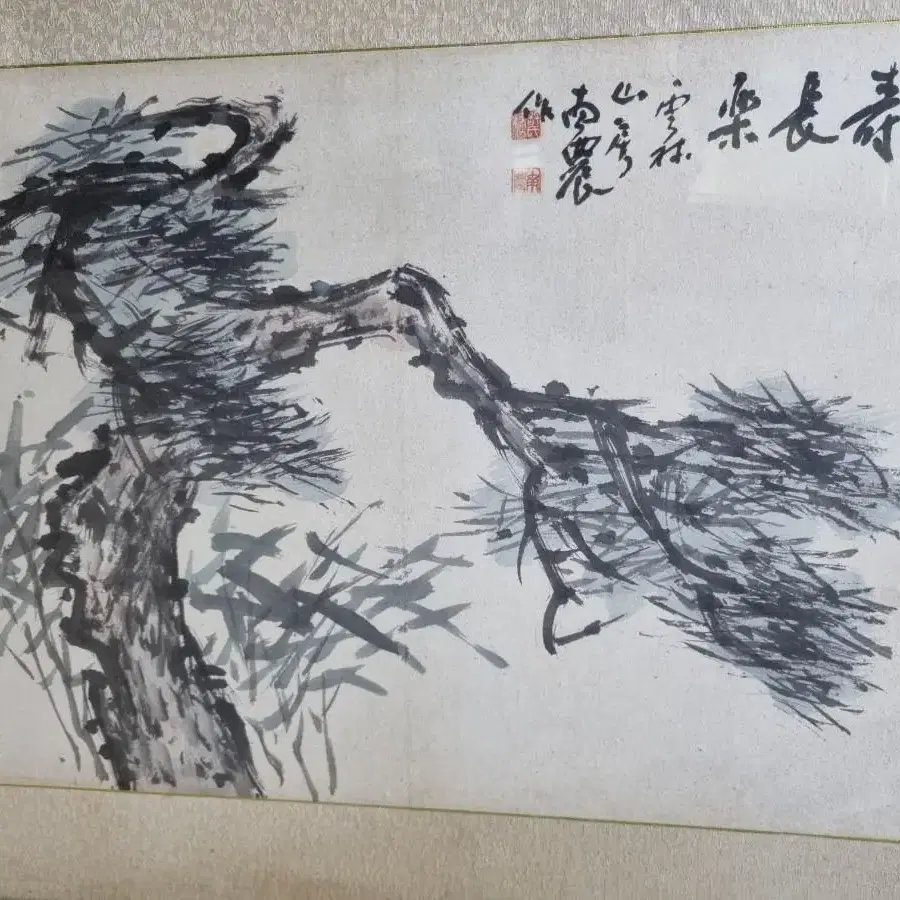 壽長樂
雲林
山房
南農
作